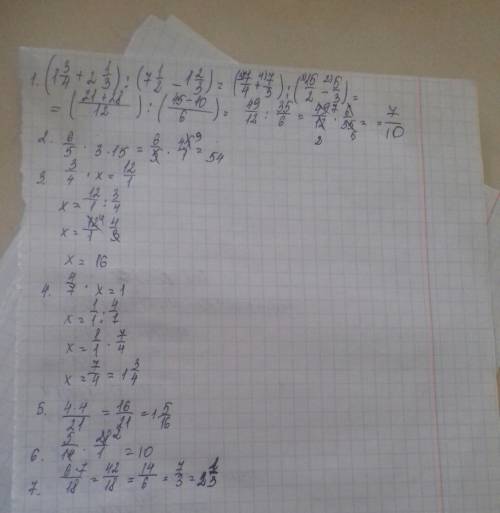 1. (1 3/4 + 2 1/3) : (7 1/2 - 1 2/3) = (3)7/4 + 4)7/3) : (3)15/2 - 2)5/3) =
= ((21+28)/12) : ((45-10)/6) = 49/12 : 35/6 = 49 7/12 2 · 6/35 5 = = 7/10
2. 6/5 · 3 · 15 = 6/5 · 45 9/1 = 54
3. 3/4 · x = 12/1
x = 12/1 : 3/4
x = 12 4/1 · 4/3
x = 16
4. 4/7 · x = 1
x = 1/1 : 4/7
x = 1/1 · 7/4
x = 7/4 = 1 3/4
5. 4·4/21 = 16/21 = 1 5/16
6. 5/14 · 28 2/1 = 10
7. 6·7/18 = 42/18 = 14/6 = 7/3 = 2 1/3